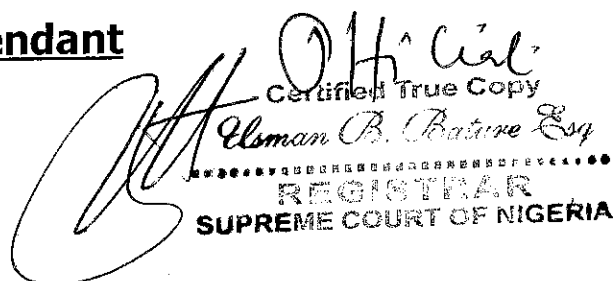 endant
Official
Certified True Copy
Usman B. Bature Esq
REGISTRAR
SUPREME COURT OF NIGERIA